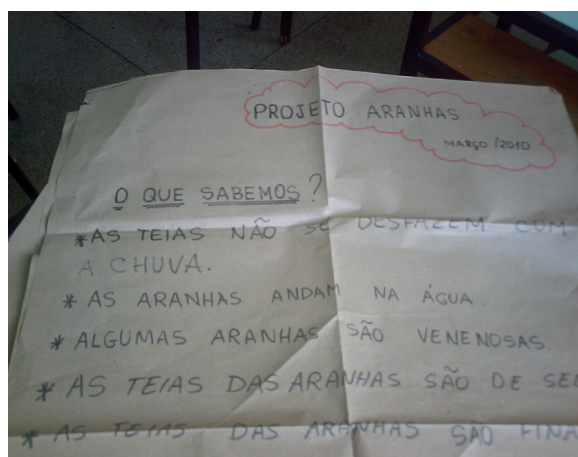 PROJETO ARANHAS
MARÇO/2010
O QUE SABEMOS?
*AS TEIAS NÃO SE DESFAZEM COM
A CHUVA.
* AS ARANHAS ANDAM NA ÁGUA.
* ALGUMAS ARANHAS SÃO VENENOSAS.
* AS TEIAS DAS ARANHAS SÃO DE
* AS TEIAS DAS ARANHAS SÃO